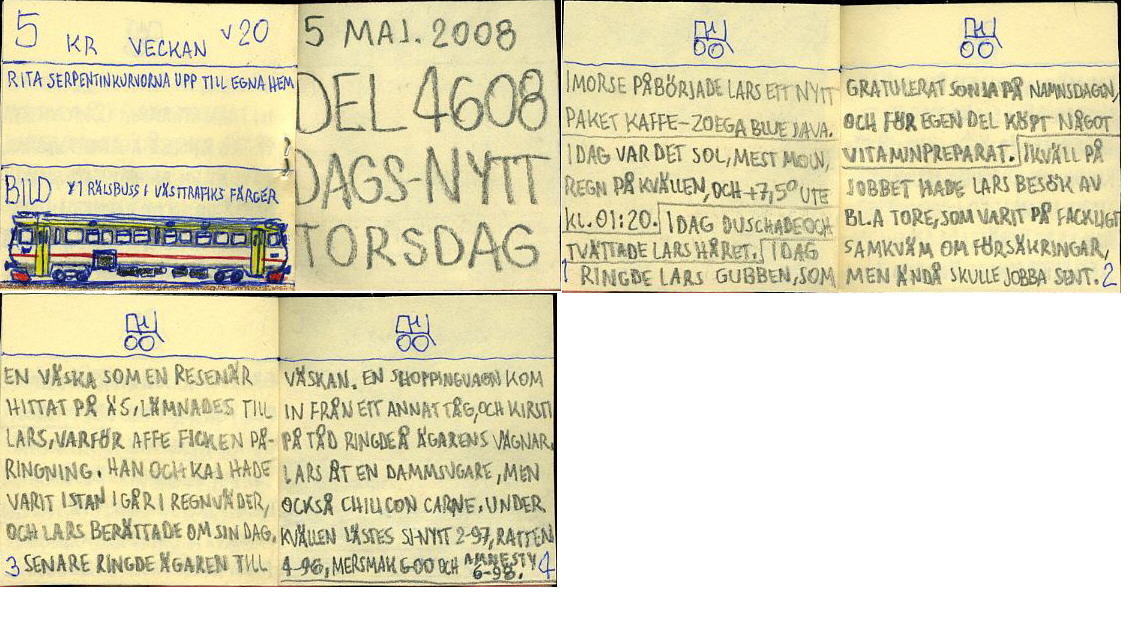 5 KR VECKAN V20
RITA SERPENTINKURVORNA UPP TILL EGNAHEM
BILD Y1 RÄLSBUSS I VÄSTTRAFIKS FÄRGER
5 MAJ. 2008
DEL 4608
DAGS-NYTT
TORSDAG
I MORSE PÅBÖRJADE LARS ETT NYTT
PAKET KAFFE-ZOEGA BLUE JAVA.
IDAG VAR DET SOL, MEST MOLN,
REGN PÅ KVÄLLEN, OCH +7,5° UTE
KL. 01:20. IDAG DUSCHADE OCH
TVÄTTADE LARS HÅRET. IDAG
1 RINGDE LARS GUBBEN, SOM
GRATULERAT SONJA PÅ NAMNSDAGEN,
OCH FÖR EGEN DEL KÖPT NÅGOT
VITAMINPREPARAT. IKVÄLL PÅ
JOBBET HADE LARS BESÖK AV
BL.A TORE, SOM VARIT PÅ FACKLIGT
SAMKVÄM OM FÖRSÄKRINGAR,
MEN ÄNDÅ SKULLE JOBBA SENT. 2
EN VÄSKA SOM EN RESENÄR
HITTAT PÅ ÄS, LÄMNADES TILL
LARS, VARFÖR AFFE FICK EN PÅ-
RINGNING. HAN OCH KAJ HADE
VARIT I STAN IGÅR I REGNVÄDER,
OCH LARS BERÄTTADE OM SIN DAG.
3 SENARE RINGDE ÄGAREN TILL
VÄSKAN. EN SHOPPINGVAGN KOM
IN FRÅN ETT ANNAT TÅG, OCH KIRSTI
PÅ TÅD RINGDE Å ÄGARENS VÄGNAR.
LARS ÅT EN DAMMSUGARE, MEN
OCKSÅ CHILI CON CARNE. UNDER
KVÄLLEN LÄSTES SJ-NYTT 2-97, RATTEN
4-96, MERSMAK 6-00 OCH AMNESTY
6-98. 4